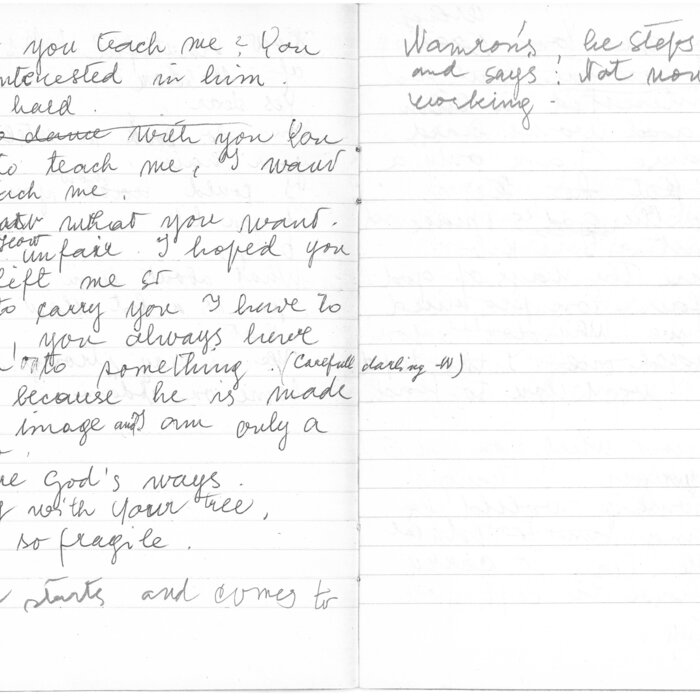 you teach me? You
interested in him.
hard.
dance with you You
to teach me, I want
me.
what you want.
unfair. I hoped you
left me so
to carry you I have to
, you always have
to something. (Carefull darling -W)
because he is made
image and I am only a
God's ways.
with your tree,
so fragile.
starts and comes to
Namron's he steps
and says: Not now
working.